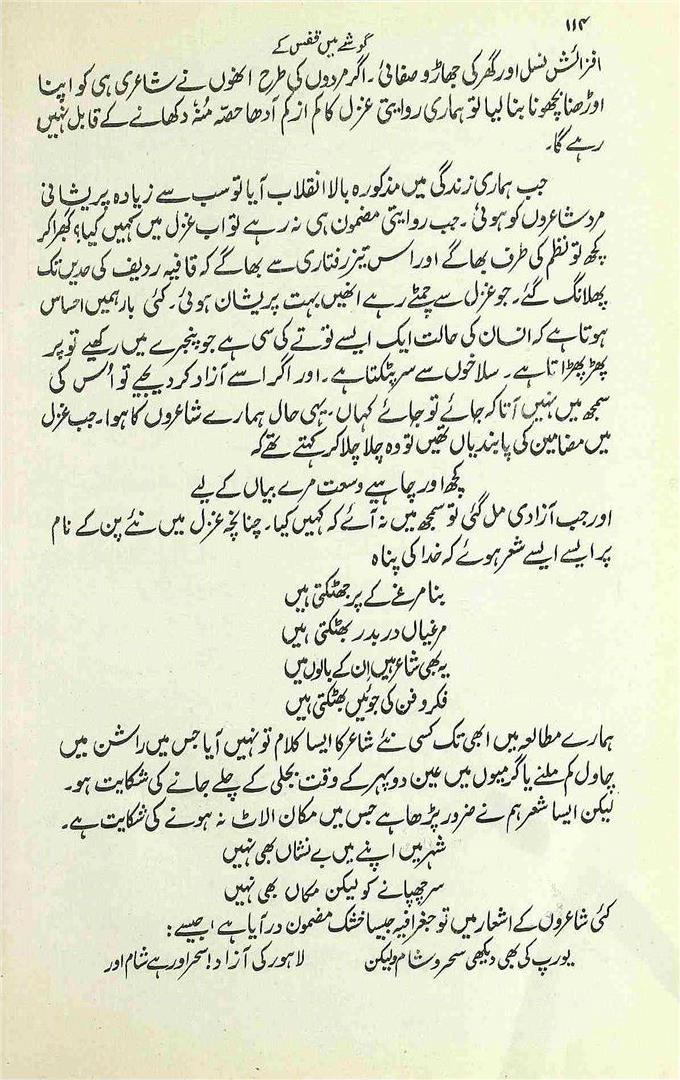 ۱۱۴
گوشے میں قفس کے
افزائش نسل اور گھر کی جھاڑو صفائی۔ اگر مردوں کی طرح انھوں نے شاعری ہی کو اپنا
اوڑھنا بچھونا بنا لیا تو ہماری روایتی غزل کا کم از کم آدھا حصّہ مُنہ دکھانے کے قابل نہیں
رہے گا۔
جب ہماری زندگی میں مذکورہ بالا انقلاب آیا تو سب سے زیادہ پریشانی
مرد شاعروں کو ہوئی۔ جب روایتی مضمون ہی نہ رہے تو اب غزل میں کہیں کیا؟ گھبرا کر
کچھ تو نظم کی طرف بھاگے اور اس تیز رفتاری سے بھاگے کہ قافیہ ردیف کی حدیں تک
پھلانگ گئے۔ جو غزل سے چمٹے رہے انھیں بہت پریشان ہوئی۔ کئی بار ہمیں احساس
ہوتا ہے کہ انسان کی حالت ایک ایسے توتے کی سی ہے جو پنجرے میں رکھیے تو پر
پھڑپھڑاتا ہے۔ سلاخوں سے سر پٹکتا ہے۔ اور اگر اسے آزاد کر دیجیے تو اُس کی
سمجھ میں نہیں آتا کہ جائے تو جائے کہاں۔ یہی حال ہمارے شاعروں کا ہوا۔ جب غزل
میں مضامین کی پابندیاں تھیں تو وہ چلا چلا کر کہتے تھے کہ
کچھ اور چاہیے وسعت مرے بیاں کے لیے
اور جب آزادی مل گئی تو سمجھ میں نہ آئے کہ کہیں کیا۔ چنانچہ غزل میں نئے پن کے نام
پر ایسے ایسے شعر ہوئے کہ خدا کی پناہ
بنا مرغے کے پر جھٹکتی ہیں
مرغیاں در بدر بھٹکتی ہیں
یہ بھی شاعر ہیں اِن کے بالوں میں
فکر و فن کی جوئیں بھٹکتی ہیں
ہمارے مطالعہ میں ابھی تک کسی نئے شاعر کا ایسا کلام تو نہیں آیا جس میں راشن میں
چاول کم ملنے یا گرمیوں میں عین دوپہر کے وقت بجلی کے چلے جانے کی شکایت ہو۔
لیکن ایسا شعر ہم نے ضرور پڑھا ہے جس میں مکان الاٹ نہ ہونے کی شکایت ہے۔
شہر میں اپنے میں بے نشاں بھی نہیں
سر چھپانے کو لیکن مکاں بھی نہیں
کئی شاعروں کے اشعار میں تو جغرافیہ جیسا خشک مضمون در آیا ہے، جیسے:
یورپ کی بھی دیکھی سحر و شام ولیکن لاہور کی آزاد! سحر اور ہے شام اور